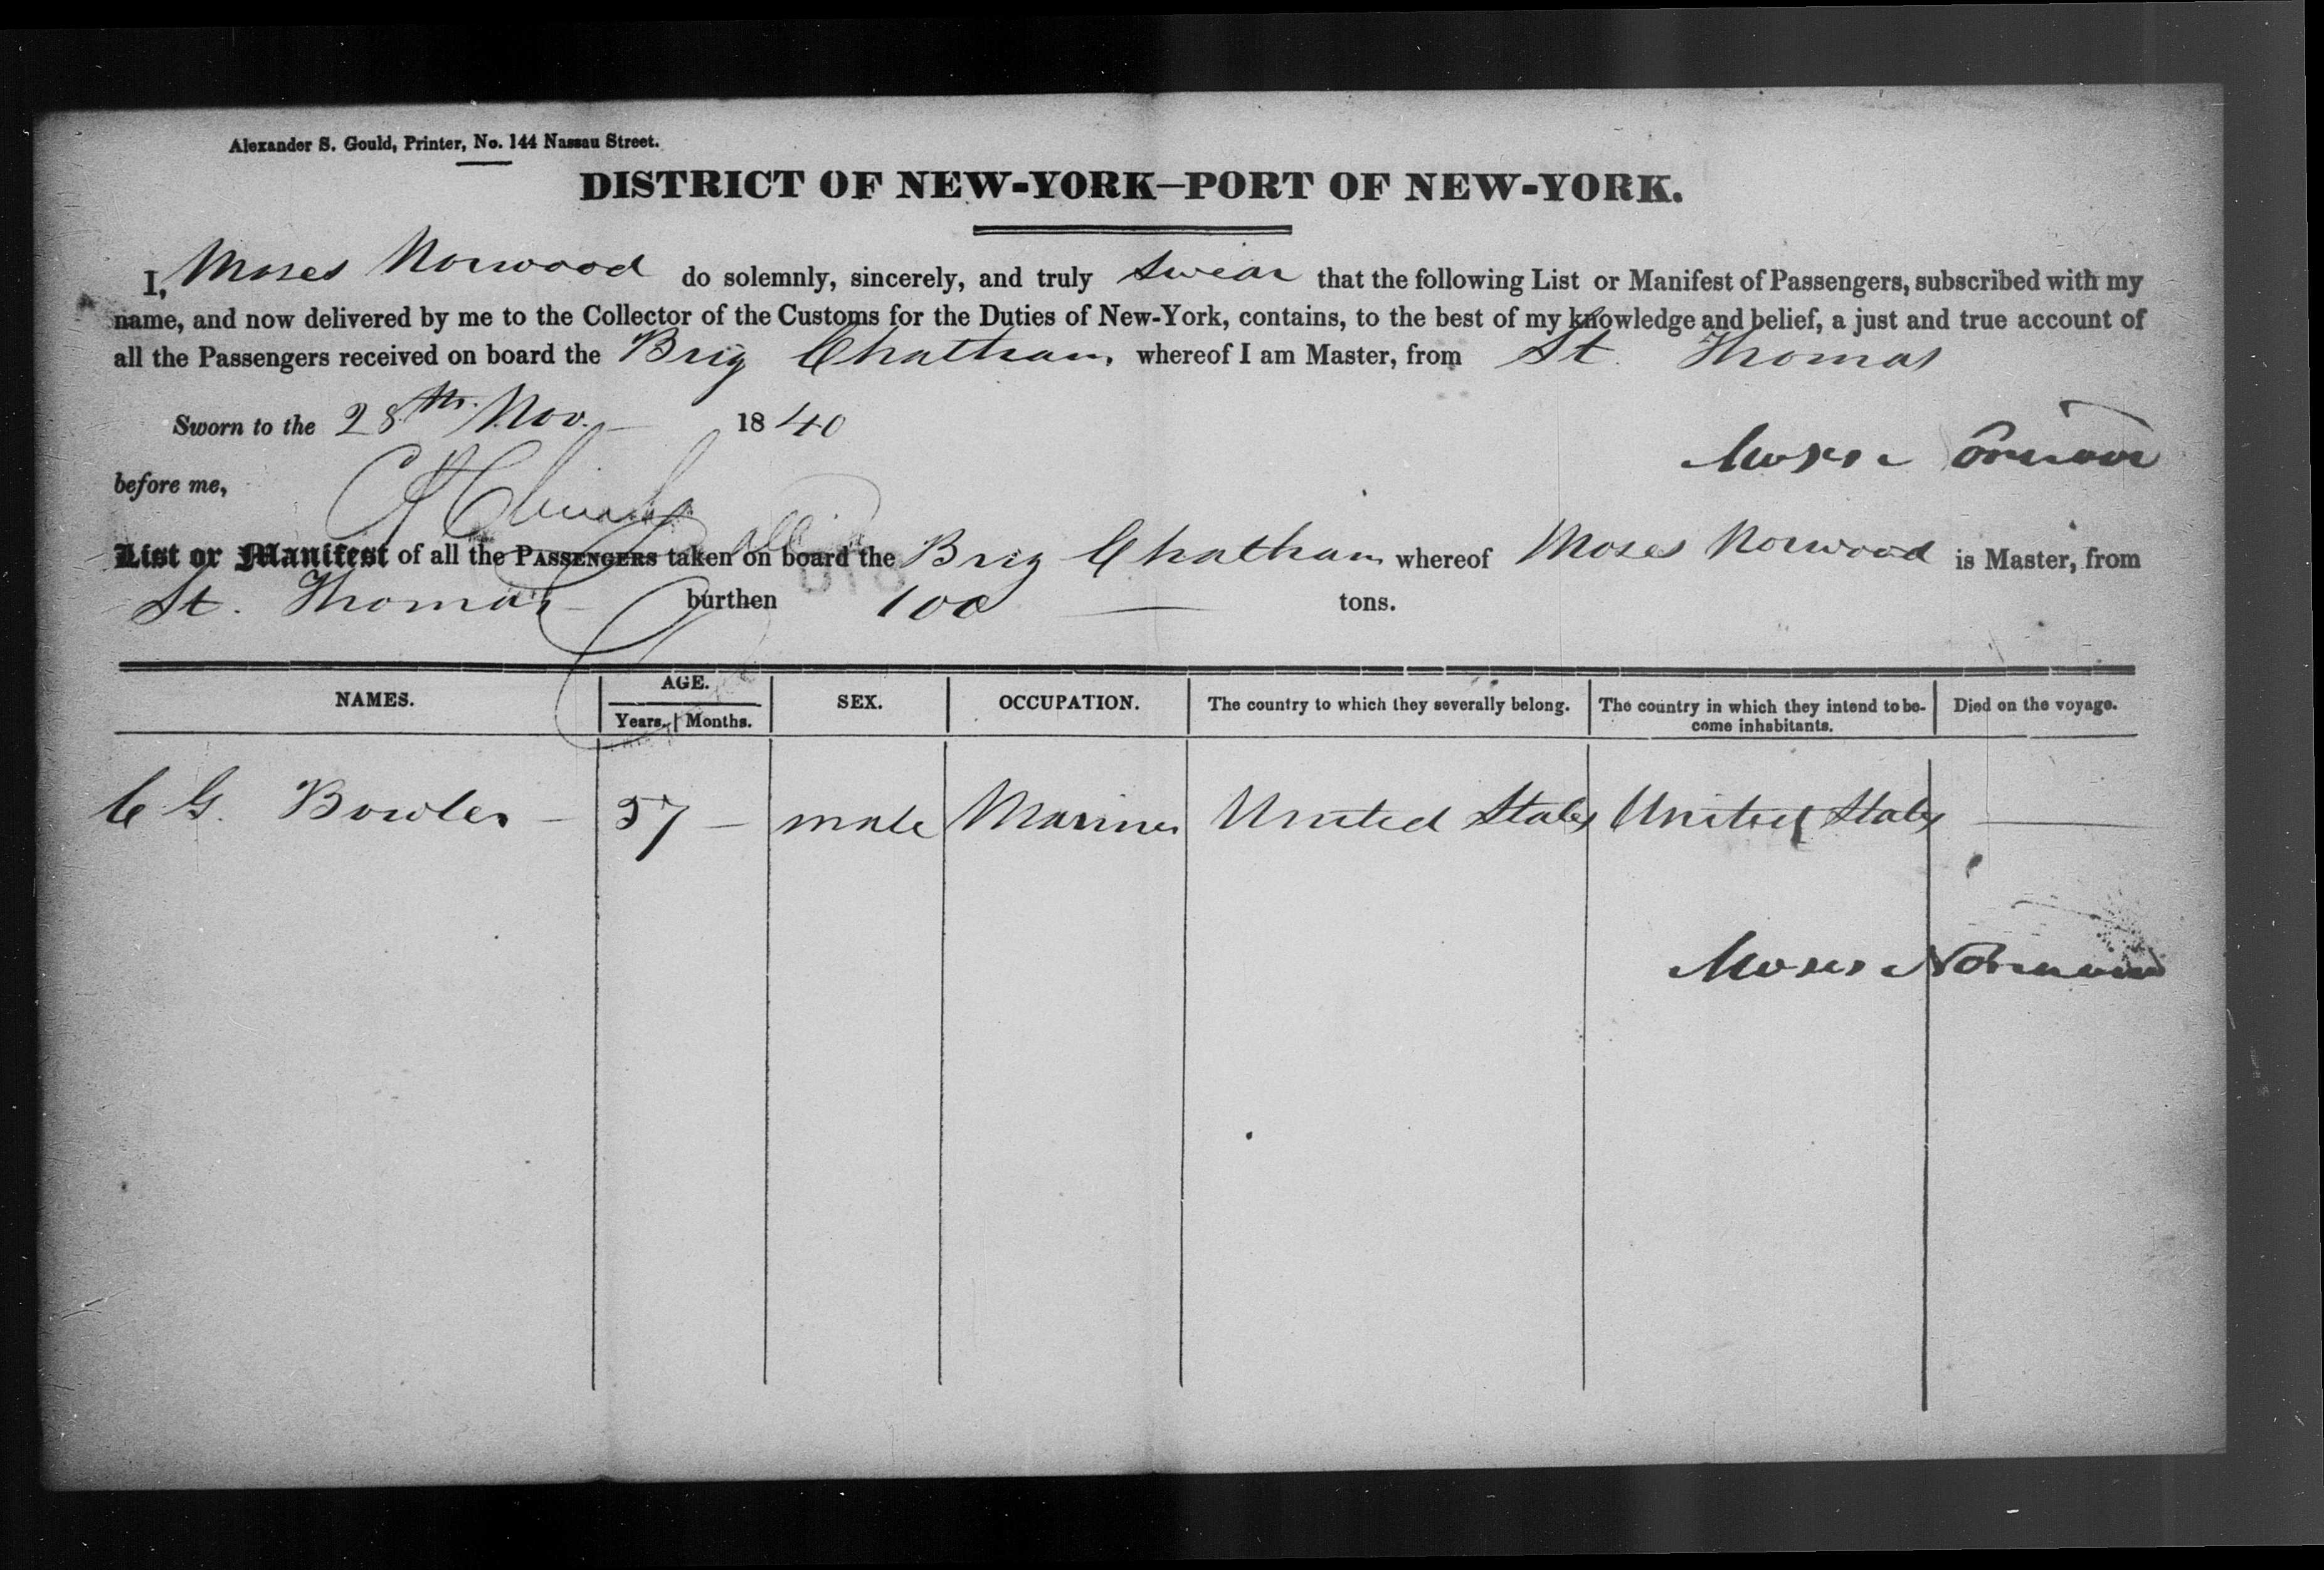 Alexander S. Gould, Printer, No. 144 Nassau Street.
DISTRICT OF NEW-YORK—PORT OF NEW-YORK.
I, Moses Norwood do solemnly, sincerely, and truly swear that the following List or Manifest of Passengers, subscribed with my
name, and now delivered by me to the Collector of the Customs for the Duties of New-York, contains, to the best of my knowledge and belief, a just and true account of
all the Passengers received on board the Brig Chatham, whereof I am Master, from St. Thomas
Sworn to the 28th. Nov. 1840
Moses Norwood
before me,
List or Manifest of all the PASSENGERS taken on board the Brig Chatham whereof Moses Norwood is Master, from
St. Thomas burthen 100 tons.
NAMES. AGE. SEX. OCCUPATION. The country to which they severally belong. The country in which they intend to be- Died on the voyage.
Years. Months. come inhabitants.
C G. Bowler 37 male Mariner United States United States
Moses Norwood